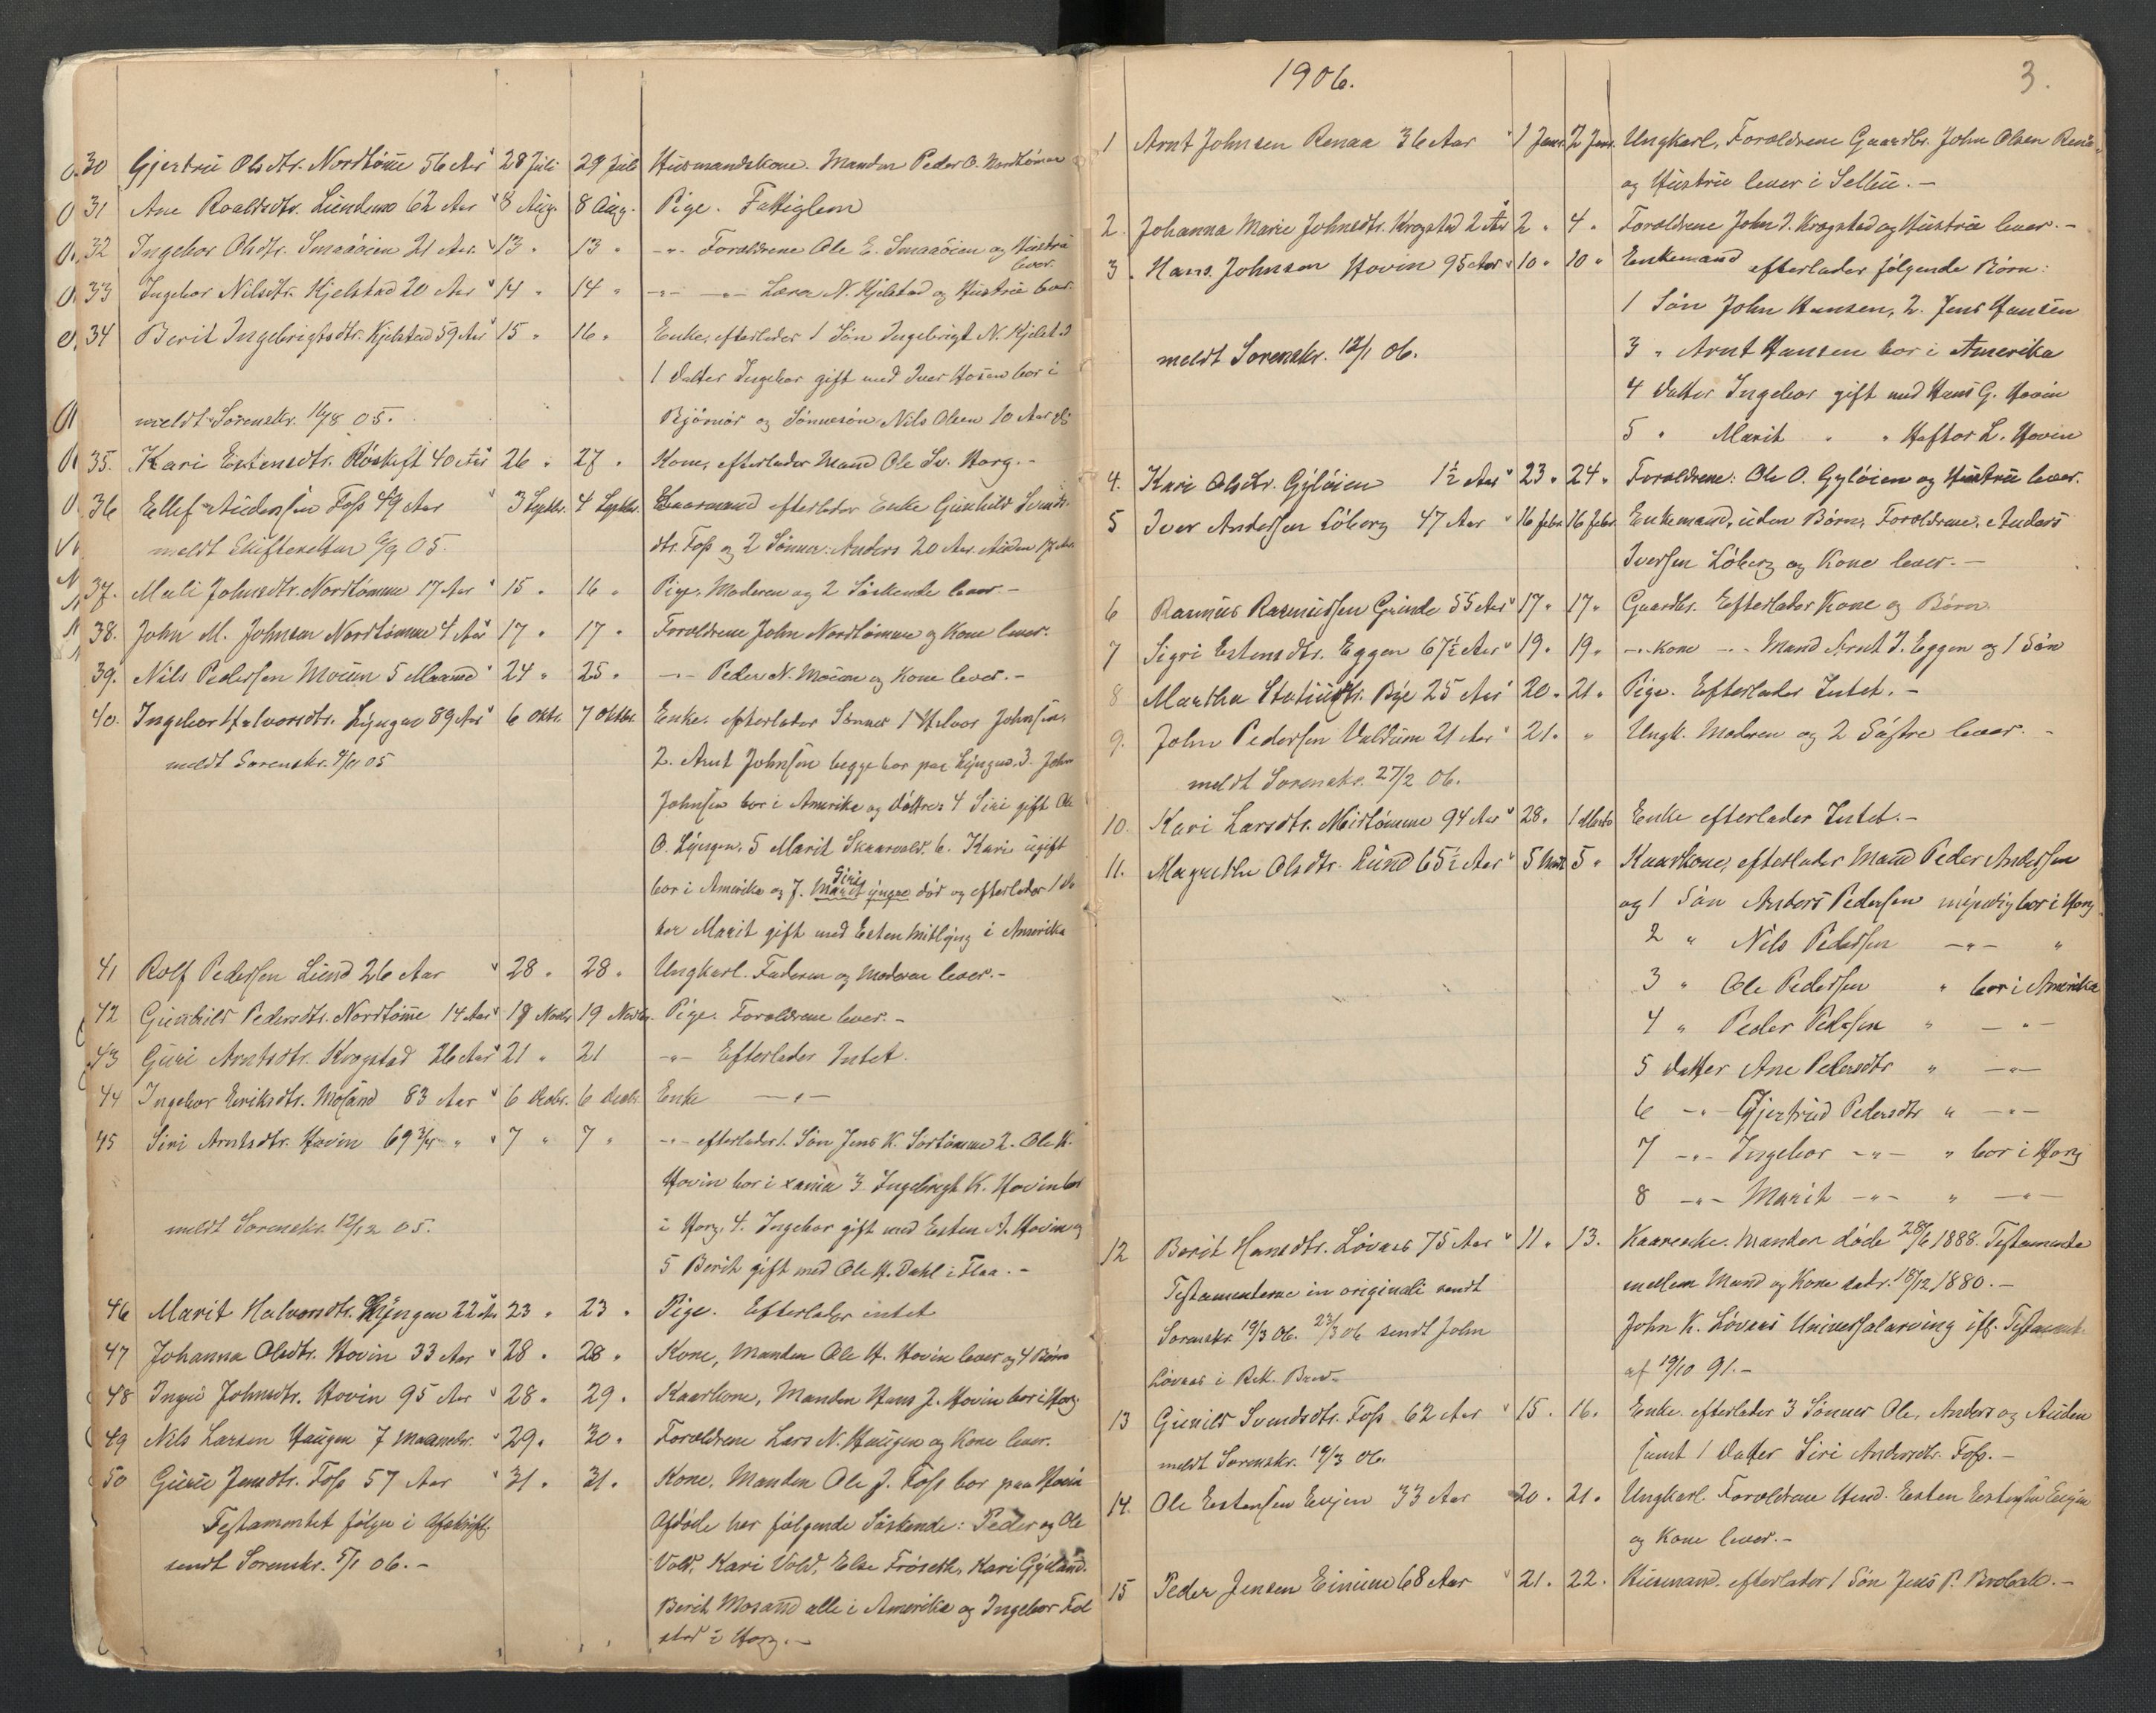 30 Gjertru Olsdtr. Nordtømme 56 Aar 28 Juli 29 Juli Husmandskone. Manden Peder O. Nordtømme
31 Ane Roaldsdtr. Lundemo 62 Aar 8 Aug. 8 Aug. Pige. Fattiglem
32 Ingebor Olsdtr. Smaaøien 21 Aar 13 " 13 " -"- Forældrene Ole E. Smaaøien og Hustru
lever.
33 Ingebor Nilsdtr. Kjelstad 20 Aar 14 " 14 " -"- -"- Lars N. Kjelstad og Hustru lever
34 Berit Ingebrigtsdtr. Kjelstad 59 Aar 15 " 16 " Enke, efterlader 1 Søn Ingebrigt N. Kjelstad
1 Datter Ingebor gift med Iver Hosen bor i
meldt Sorenskr. 16/8 05. Bjørnør og Sønnesøn Nils Olsen 10 Aar
35. Kari Estensdtr. Røskaft 40 Aar 26 " 27 " Kone, efterlader Mand Ole Sv. Horg. -
36 Ellef Audensen Foss 49 Aar 3 Septbr. 4 Septbr. Gaarmand efterlader Enke Gunhild Svends-
meldt Skifteretten 6/9 05. dtr. Foss og 2 Sønner: Anders 20 Aar. Auden 17 Aar
37. Mali Johnsdtr. Nordtømme 17 Aar 15 " 16 " Pige. Moderen og 2 Søskende lever. -
38. John M. Johnsen Nordtømme 4 Aar 17 " 17 " Forældrene John Nordtømme og Kone lever.
39. Nils Pedersen Moum 5 Maaned 24 " 25 " -"- Peder N. Moum og Kone lever. -
40. Ingebor Halvorsdtr. Lyngen 89 Aar 6 Oktr. 7 Oktbr. Enke. efterlader Sønner 1 Halvor Johnsen,
meldt Sorenskr. 9/11 05 2. Arnt Johnsen begge bor paa Lyngen. 3. John
Johnsen bor i Amerika og Døttre: 4 Siri gift Ole
O. Lyngen, 5 Marit Skaarvold. 6. Kari ugift
bor i Amerika og 7. Marit Siri yngre død og efterlader 1 Dat
ter Marit gift med Esten Mitlyng i Amerika
41 Rolf Pedersen Lund 26 Aar 28 " 28 " Ungkarl. Faderen og Moderen lever. -
42 Gunhild Pedersdtr. Nordtømme 14 Aar 18 Novbr 19 Novbr. Pige. Forældrene lever. -
43 Guri Arntsdtr. Krogstad 26 Aar 21 " 21 -"- Efterlader Intet.
44 Ingebor Eriksdtr. Mosand 83 Aar 6 Decbr. 6 Decbr. Enke -"-
45 Siri Arntsdtr. Hovin 69 3/4 " 7 " 7 " -"- efterlader 1. Søn Jens K. Sortømme 2. Ole K.
Hovin bor i xania 3 Ingebrigt K. Hovin bor
meldt Sorenskr. 12/12 05. i Horg, 4. Ingebor gift med Esten A. Hovin og
5 Berit gift med Ole H. Dahl i Flaa. -
46 Marit Halvorsdtr. Lyngen 22 Aar 23 " 23 " Pige. Efterlader intet
47 Johanna Olsdtr. Hovin 33 Aar 28 " 28 " Kone, Manden Ole H. Hovin lever og 4 Børn
48 Ingri Johnsdtr. Hovin 95 Aar 28 " 29 " Kaarkone, Manden Hans J. Hovin bor i Horg
49 Nils Larsen Haugen 7 Maander. 29 " 30 " Forældrene Lars N. Haugen og Kone lever.
50 Guru Jensdtr. Foss 57 Aar 31 " 31 " Kone. Manden Ole J. Foss bor paa Hovin
Testamentet følger i Afskrift. Afdøde har følgende Søskende: Peder og Ole
sendt Sorenskr. 5/1 06. - Vold, Kari Vold, Else Frøseth, Kari Gylland.
Berit Mosand alle i Amerika og Ingebor Fol
stad i Horg. -
1906. 3.
1 Arnt Johnsen Renaa 36 Aar 1 Janr. 2 Janr. Ungkarl, Forældrene Gaardbr. John Olsen Renaa
og Hustru lever i Selbu. -
2. Johanna Marie Johnsdtr. Krogstad 2 Aar 2 " 4 " Forældrene John J. Krogstad og Hustru lever. -
3. Hans Johnsen Hovin 95 Aar 10 " 10 " Enkemand efterlader følgende Børn:
1 Søn John Hansen, 2. Jens Hansen
meldt Sorenskr. 12/1 06. 3 " Arnt Hansen bor i Amerika
4 Datter Ingebor gift med Hans G. Hovin
5 " Marit " " Haftor L. Hovin
4. Kari Olsdtr. Gyløien 1½ Aar 23 " 24 " Forældrene: Ole O. Gyløien og Hustru lever.
5 Iver Anderssen Løberg 47 Aar 16 Febr. 16 Febr. Enkemand, uden Børn, Forældrene, Anders
Iverssen Løberg og Kone lever. -
6 Rasmus Rasmussen Grinde 55 Aar 17 " 17 " Gaardbr. Efterlader Kone og Børn.
7 Sigri Estensdtr. Eggen 67½ Aar 19 " 19 " -"- Kone -"- Mand Arnt J. Eggen og 1 Søn
8 Martha Statiusdtr. Bye 25 Aar 20 " 21 " Pige. Efterlader Intet. -
9. John Pederssen Valdum 21 Aar 21 " " Ungk. Moderen og 2 Søstre lever. -
meldt Sorenskr. 27/2 06.
10. Kari Larsdtr. Midtømme 94 Aar 28 " 1 Marts Enke efterlader Intet. -
11. Magrethe Olsdtr. Lund 65½ Aar 5 Marts 5 " Kaarkone, efterlader Mand Peder Anderssen
og 1 Søn Anders Pederssen myndig bor i Horg
2 " Nils Pederssen -"- "
3 " Ole Pederssen " bor i Amerika
4 " Peder Pederssen " -"-
5 Datter Ane Pedersdtr " -"-
6 -"- Gjertrud Pedersdtr " -"-
7 -"- Ingebor -"- " bor i Horg
8 -"- Marit -"- " -"-
12 Berit Hansdtr. Løvaas 75 Aar 11 " 13. Kaarenke. Manden døde 28/6 1888. Testamente
Testamenterne in originali sendt mellem Mand og Kone datr. 18/12 1880. -
Sorenskr. 19/3 06. 23/3 06 sendt John John K. Løvaas Universalarving ifl. Testament
Løvaas i Rek. Brev. af 19/10 91. -
13 Gunild Svendsdtr. Foss 62 Aar 15. 16. Enke. efterlader 3 Sønner Ole, Anders og Auden
meldt Sorenskr. 19/3 06. samt 1 Datter Siri Andersdtr. Foss. -
14. Ole Estenssen Evjen 33 Aar 20. 21. Ungkarl. Forældrene Husmd. Esten Estenssen Evjen
og Kone lever. -
15 Peder Jensen Einum 68 Aar 21. 22. Husmand. efterlader 1 Søn Jens P. Brobak. -